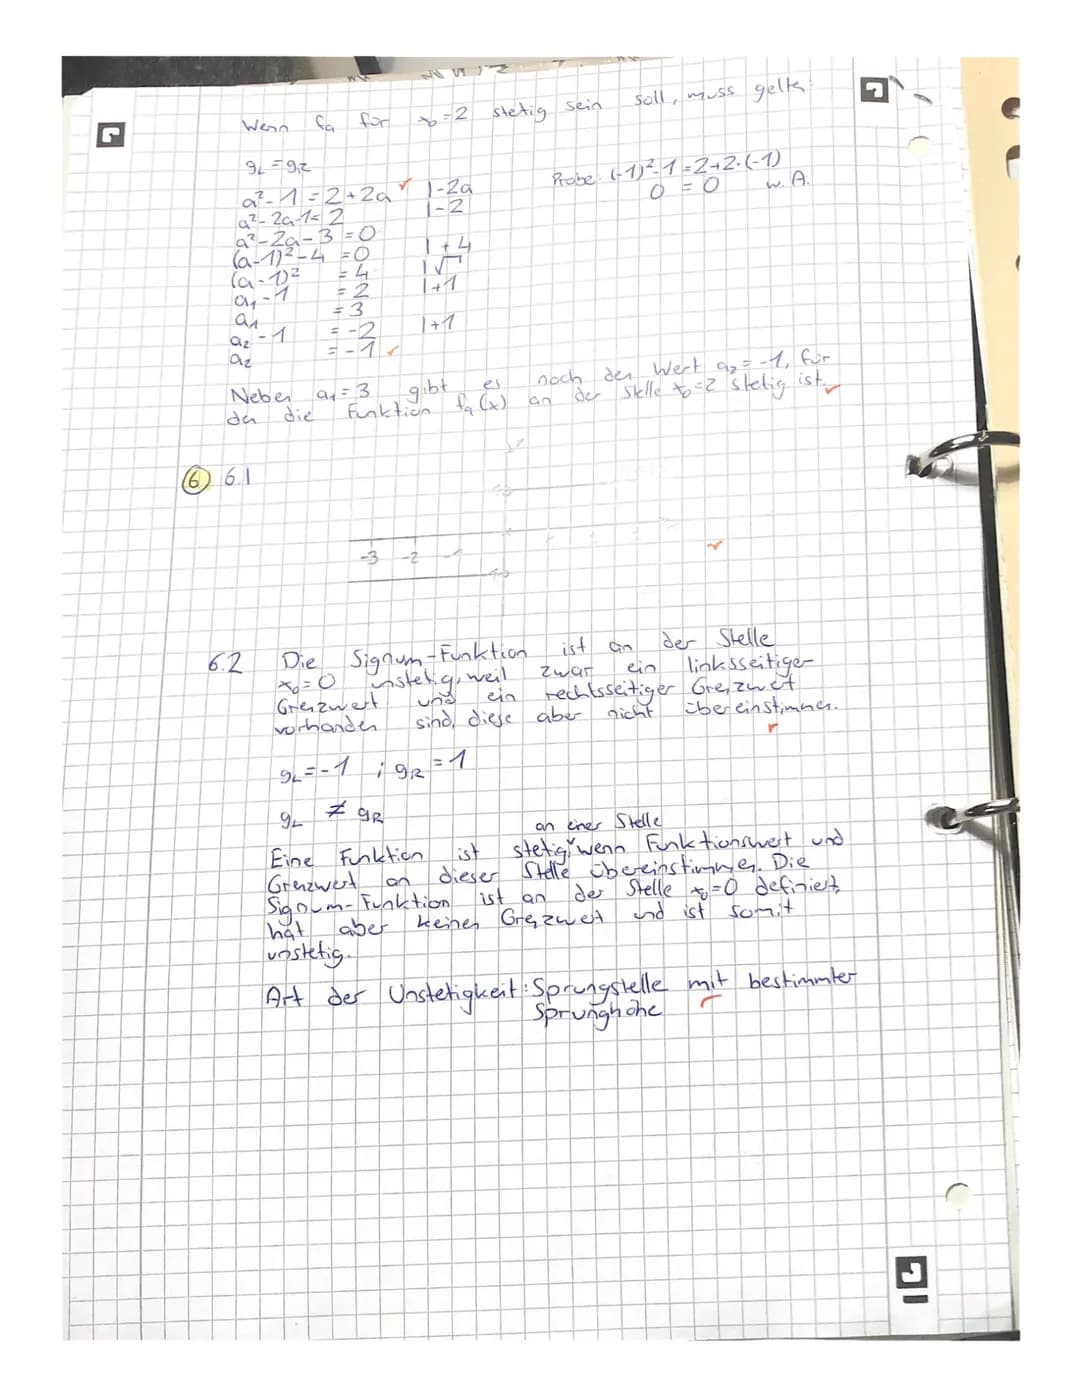 Wenn fa für x₀=2 stetig sein soll, muss gelten:
gL = gR
a²-1 = 2+2a |-2a
Probe: (-1)²-1 = 2+2·(-1)
0 = 0 w. A.
a²-2a-1= 2 |-2
a²-2a-3 = 0
(a-1)²-4 = 0 |+4
(a-1)² = 4 |√
a₁-1 = 2 |+1
a₁ = 3
a₂-1 = -2 |+1
a₂ = -1
Neben a₁= 3 gibt es noch den Wert a₂= -1, für
den die Funktion fa(x) an der Stelle x₀=2 stetig ist.
6 6.1
-3 -2 -1
6.2 Die Signum-Funktion ist an der Stelle
x₀=0 unstetig, weil zwar ein linksseitiger
Grenzwert und ein rechtsseitiger Grenzwert
vorhanden sind, diese aber nicht übereinstimmen.
gL=-1 ; gR=1
gL ≠ gR
an einer Stelle
Eine Funktion ist stetig, wenn Funktionswert und
Grenzwert an dieser Stelle übereinstimmen. Die
Signum-Funktion ist an der Stelle x₀=0 definiert,
hat aber keinen Grenzwert und ist somit
unstetig.
Art der Unstetigkeit: Sprungstelle mit bestimmter
Sprunghöhe